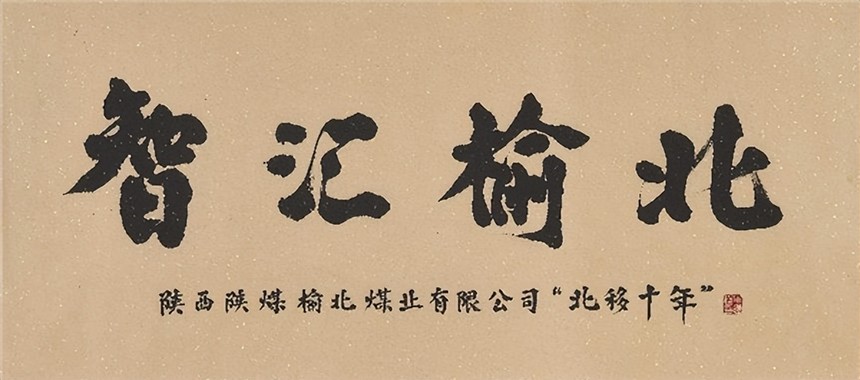 智汇榆北
陕西陕煤榆北煤业有限公司“北移十年”